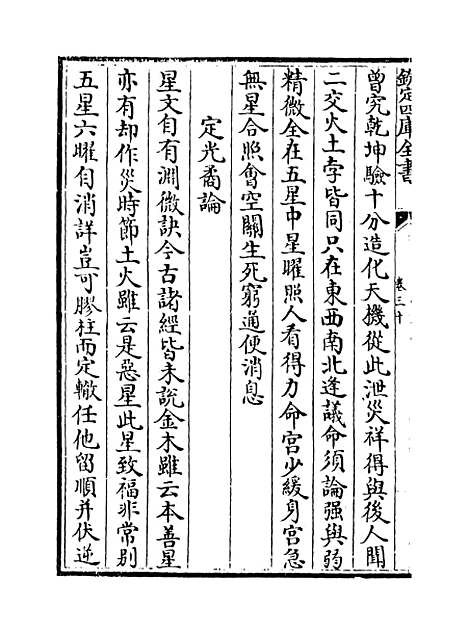 欽定四庫全書
卷三十
曾究乾坤驗十分造化天機從此泄災祥得與後人聞
二交火土孛皆同只在東西南北逢議命須論强與弱
精微全在五星中星曜照人看得力命宫少緩身宫急
無星合照會空關生死窮通便消息
定光喬論
星文自有淵微訣今古諸經皆未說金木雖云本善星
亦有却作災時節土火雖云是惡星此星致福非常别
五星六曜自消詳豈可膠柱而定轍任他留順并伏逆